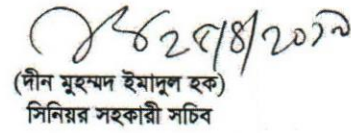 ২৫/৪/২০১৯
(দীন মুহম্মদ ইমাদুল হক)
সিনিয়র সহকারী সচিব